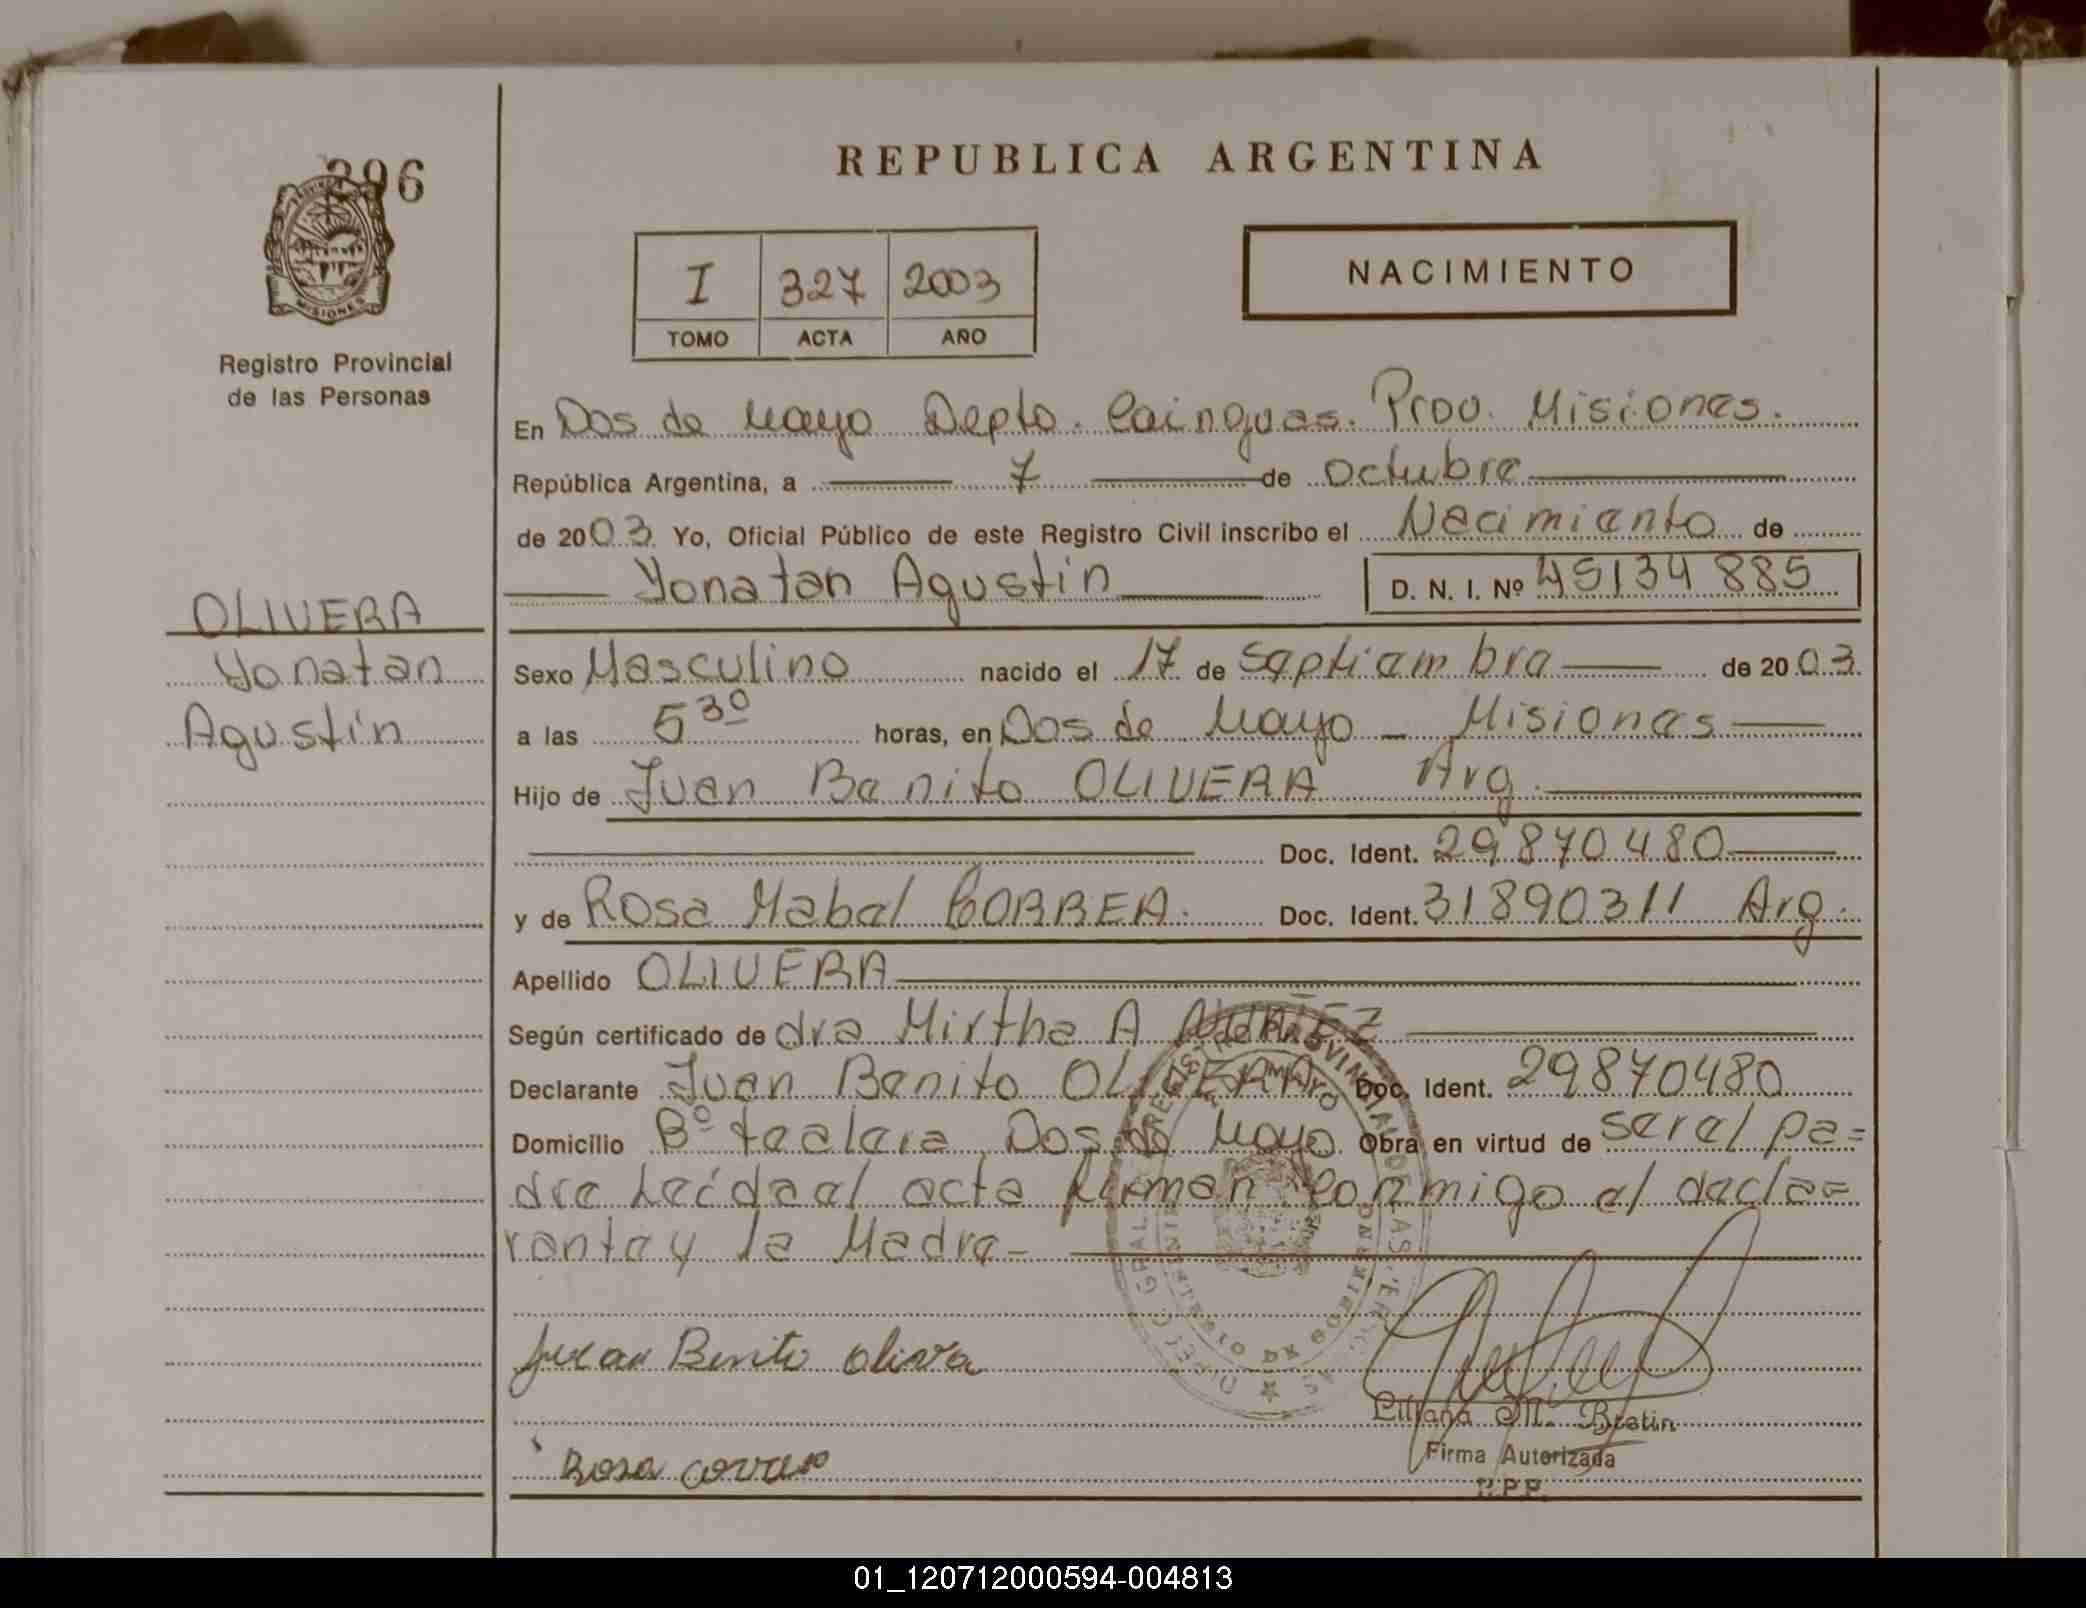 REPUBLICA ARGENTINA
396
PROVINCIA DE MISIONES
I 327 2003
TOMO ACTA AÑO
NACIMIENTO
Registro Provincial
de las Personas
En Dos de Mayo Depto. Cainguas. Prov. Misiones.
República Argentina, a 7 de octubre
de 2003 Yo, Oficial Público de este Registro Civil inscribo el Nacimiento de
Yonatan Agustín D. N. I. Nº 45134885
OLIVERA
Yonatan
Agustín
Sexo Masculino nacido el 17 de septiembre de 2003.
a las 5 30 horas, en Dos de Mayo - Misiones
Hijo de Juan Benito OLIVERA Arg.
Doc. Ident. 29870480
y de Rosa Mabel CORREA. Doc. Ident. 31890311 Arg.
Apellido OLIVERA
Según certificado de dra Mirtha A NUÑEZ
Declarante Juan Benito OLIVERA Doc. Ident. 29870480
Domicilio Bº Dos de Mayo. Obra en virtud de ser el pa=
dre Leída el acta firman conmigo el decla=
rante y la Madre-
Juan Benito oliva
Liliana M. Bretin
Rosa correa
Firma Autorizada
R.P.P.
01_120712000594-004813